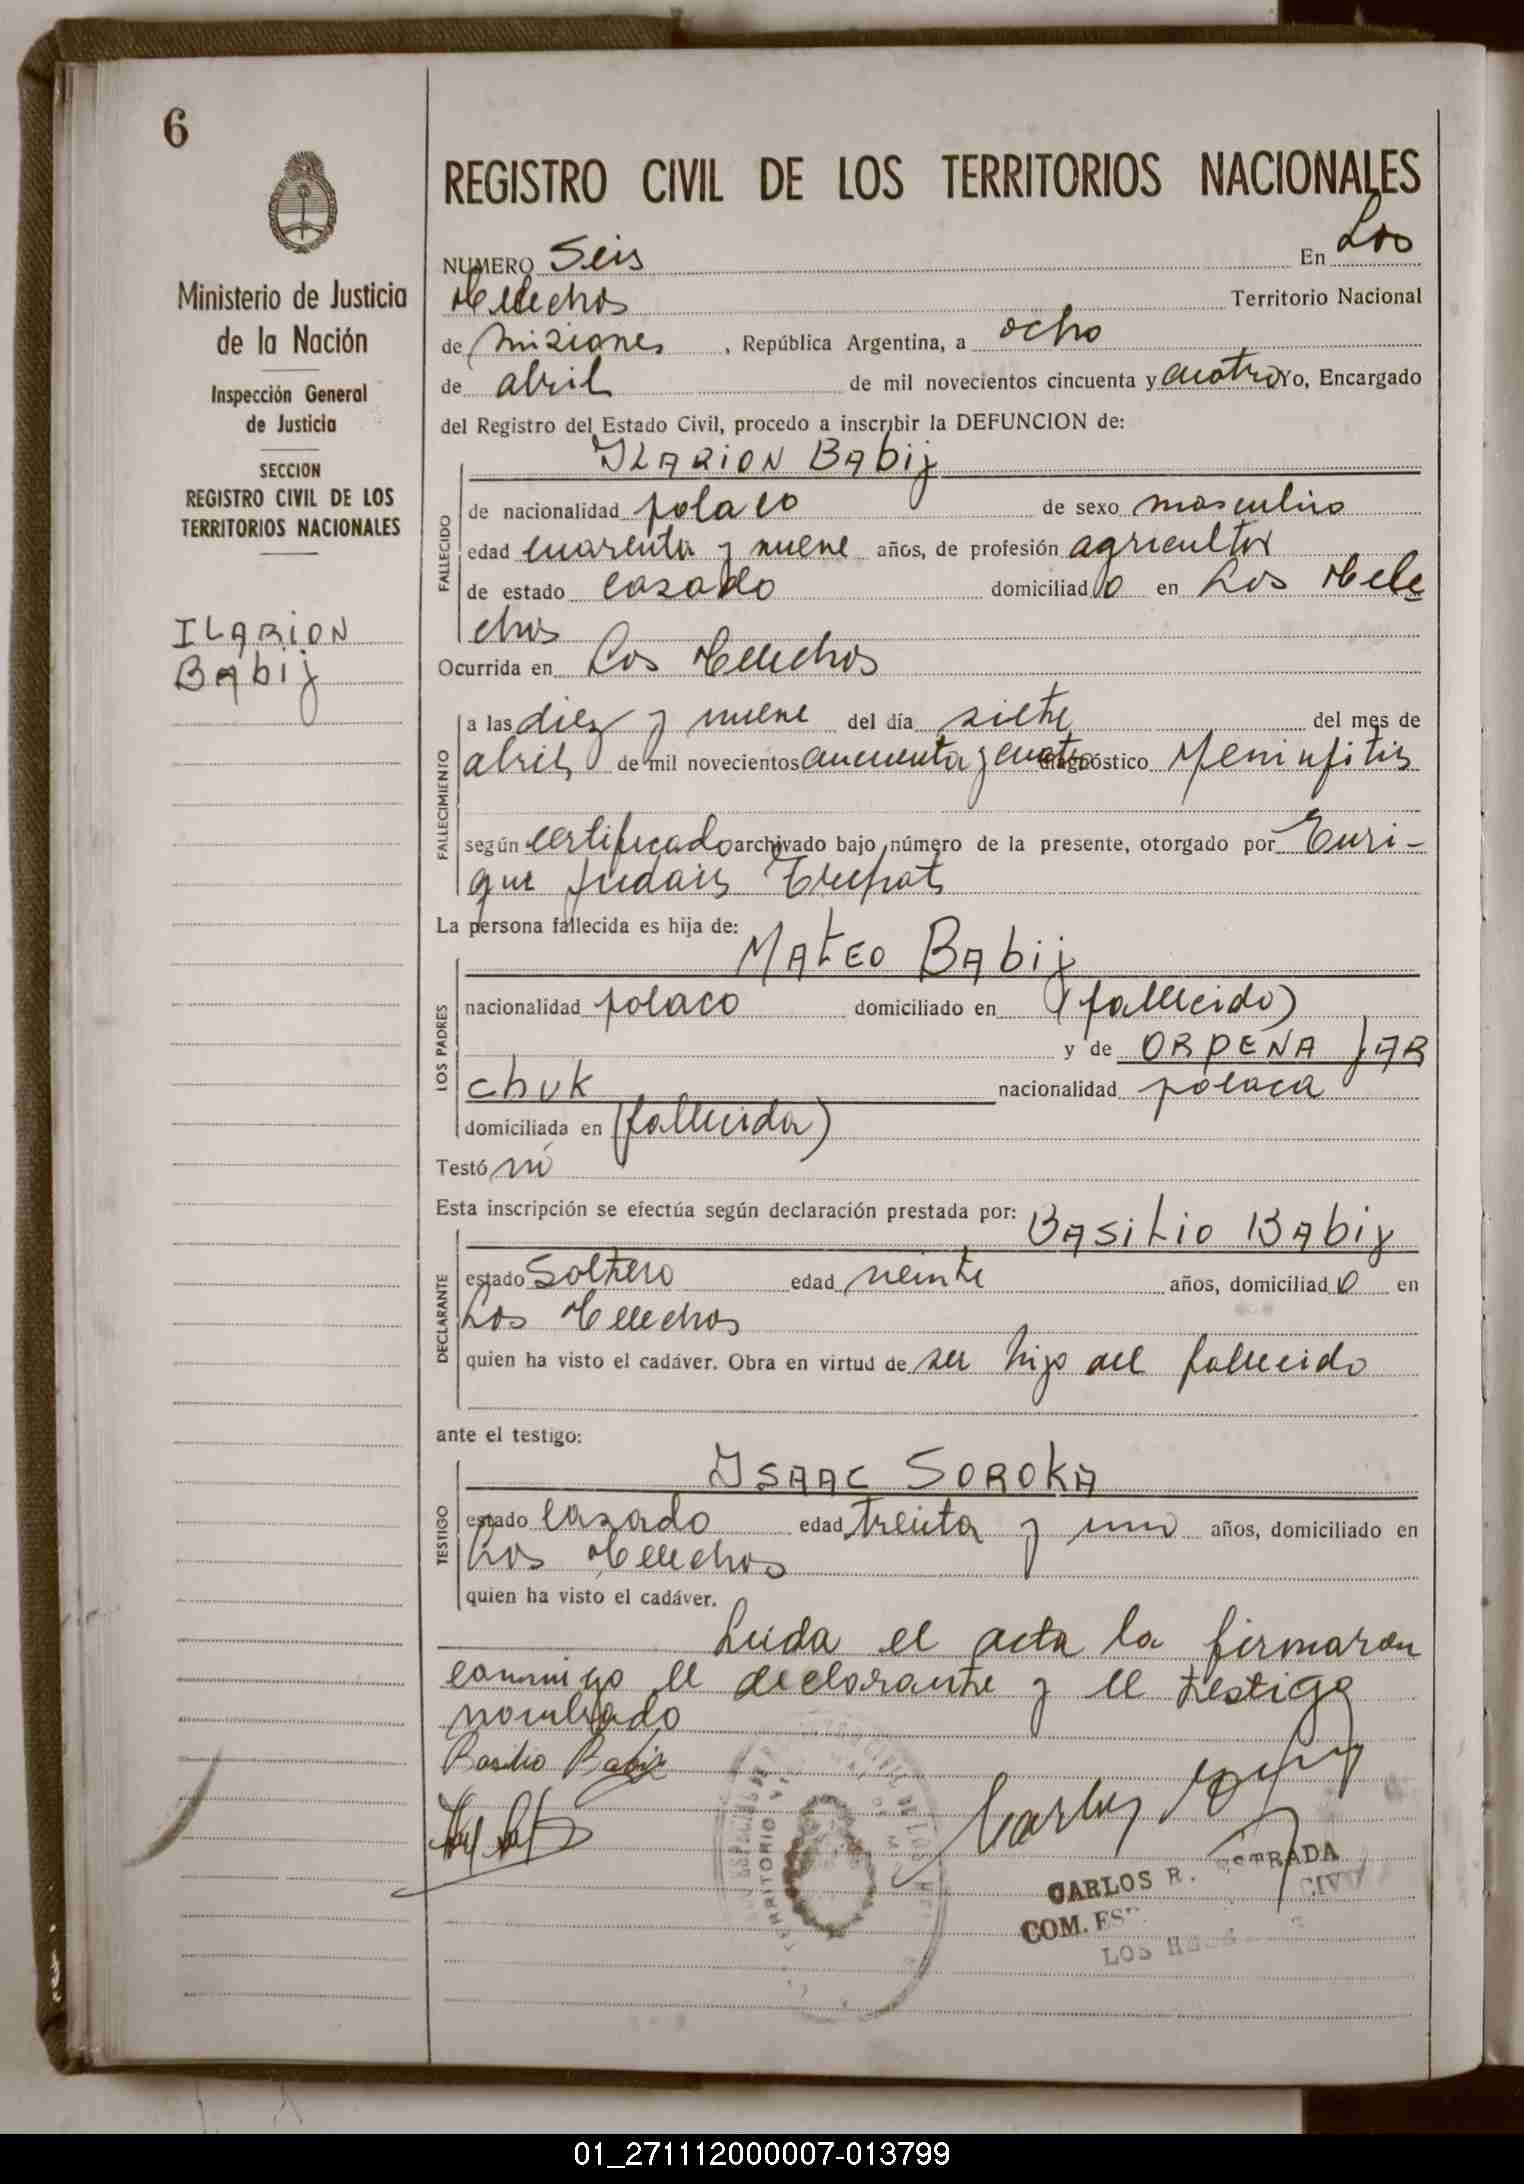 6
REGISTRO CIVIL DE LOS TERRITORIOS NACIONALES
Ministerio de Justicia
de la Nación
Inspección General
de Justicia
SECCION
REGISTRO CIVIL DE LOS
TERRITORIOS NACIONALES
ILARION
Babij
NUMERO Seis En Los
Helechos Territorio Nacional
de Misiones, República Argentina, a ocho
de abril de mil novecientos cincuenta y cuatro Yo, Encargado
del Registro del Estado Civil, procedo a inscribir la DEFUNCION de:
ILARION BAbij
FALLECIDO
de nacionalidad polaco de sexo masculino
edad cuarenta y nueve años, de profesión agricultor
de estado casado domiciliado en Los Hele
chos
Ocurrida en Los Helechos
FALLECIMIENTO
a las diez y nueve del día siete del mes de
abril de mil novecientos cincuenta y cuatro diagnóstico
según certificado archivado bajo número de la presente, otorgado por Enri-
que
La persona fallecida es hija de:
MATEO BAbij
LOS PADRES
nacionalidad polaco domiciliado en (fallecido)
y de ORDENA JAR
chuk nacionalidad polaca
domiciliada en (fallecida)
Testó no
Esta inscripción se efectúa según declaración prestada por:
BASILIO BAbij
DECLARANTE
estado Soltero edad veinte años, domiciliado en
Los Helechos
quien ha visto el cadáver. Obra en virtud de ser hijo del fallecido
ante el testigo:
ISAAC SOROKA
TESTIGO
estado casado edad treinta y uno años, domiciliado en
Los Helechos
quien ha visto el cadáver.
Leida el acta la firmaron
conmigo el declarante y el testigo
nombrado
Basilio Babij
Carlos
CARLOS R. ESTRADA
COM. ESP. CIVIL
LOS HELECHOS
01_271112000007-013799